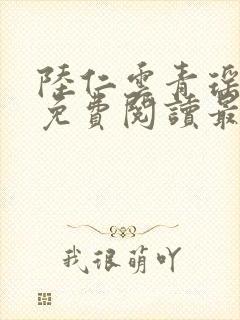 陸仁雲青瑶
免費閱讀最
我很萌吖